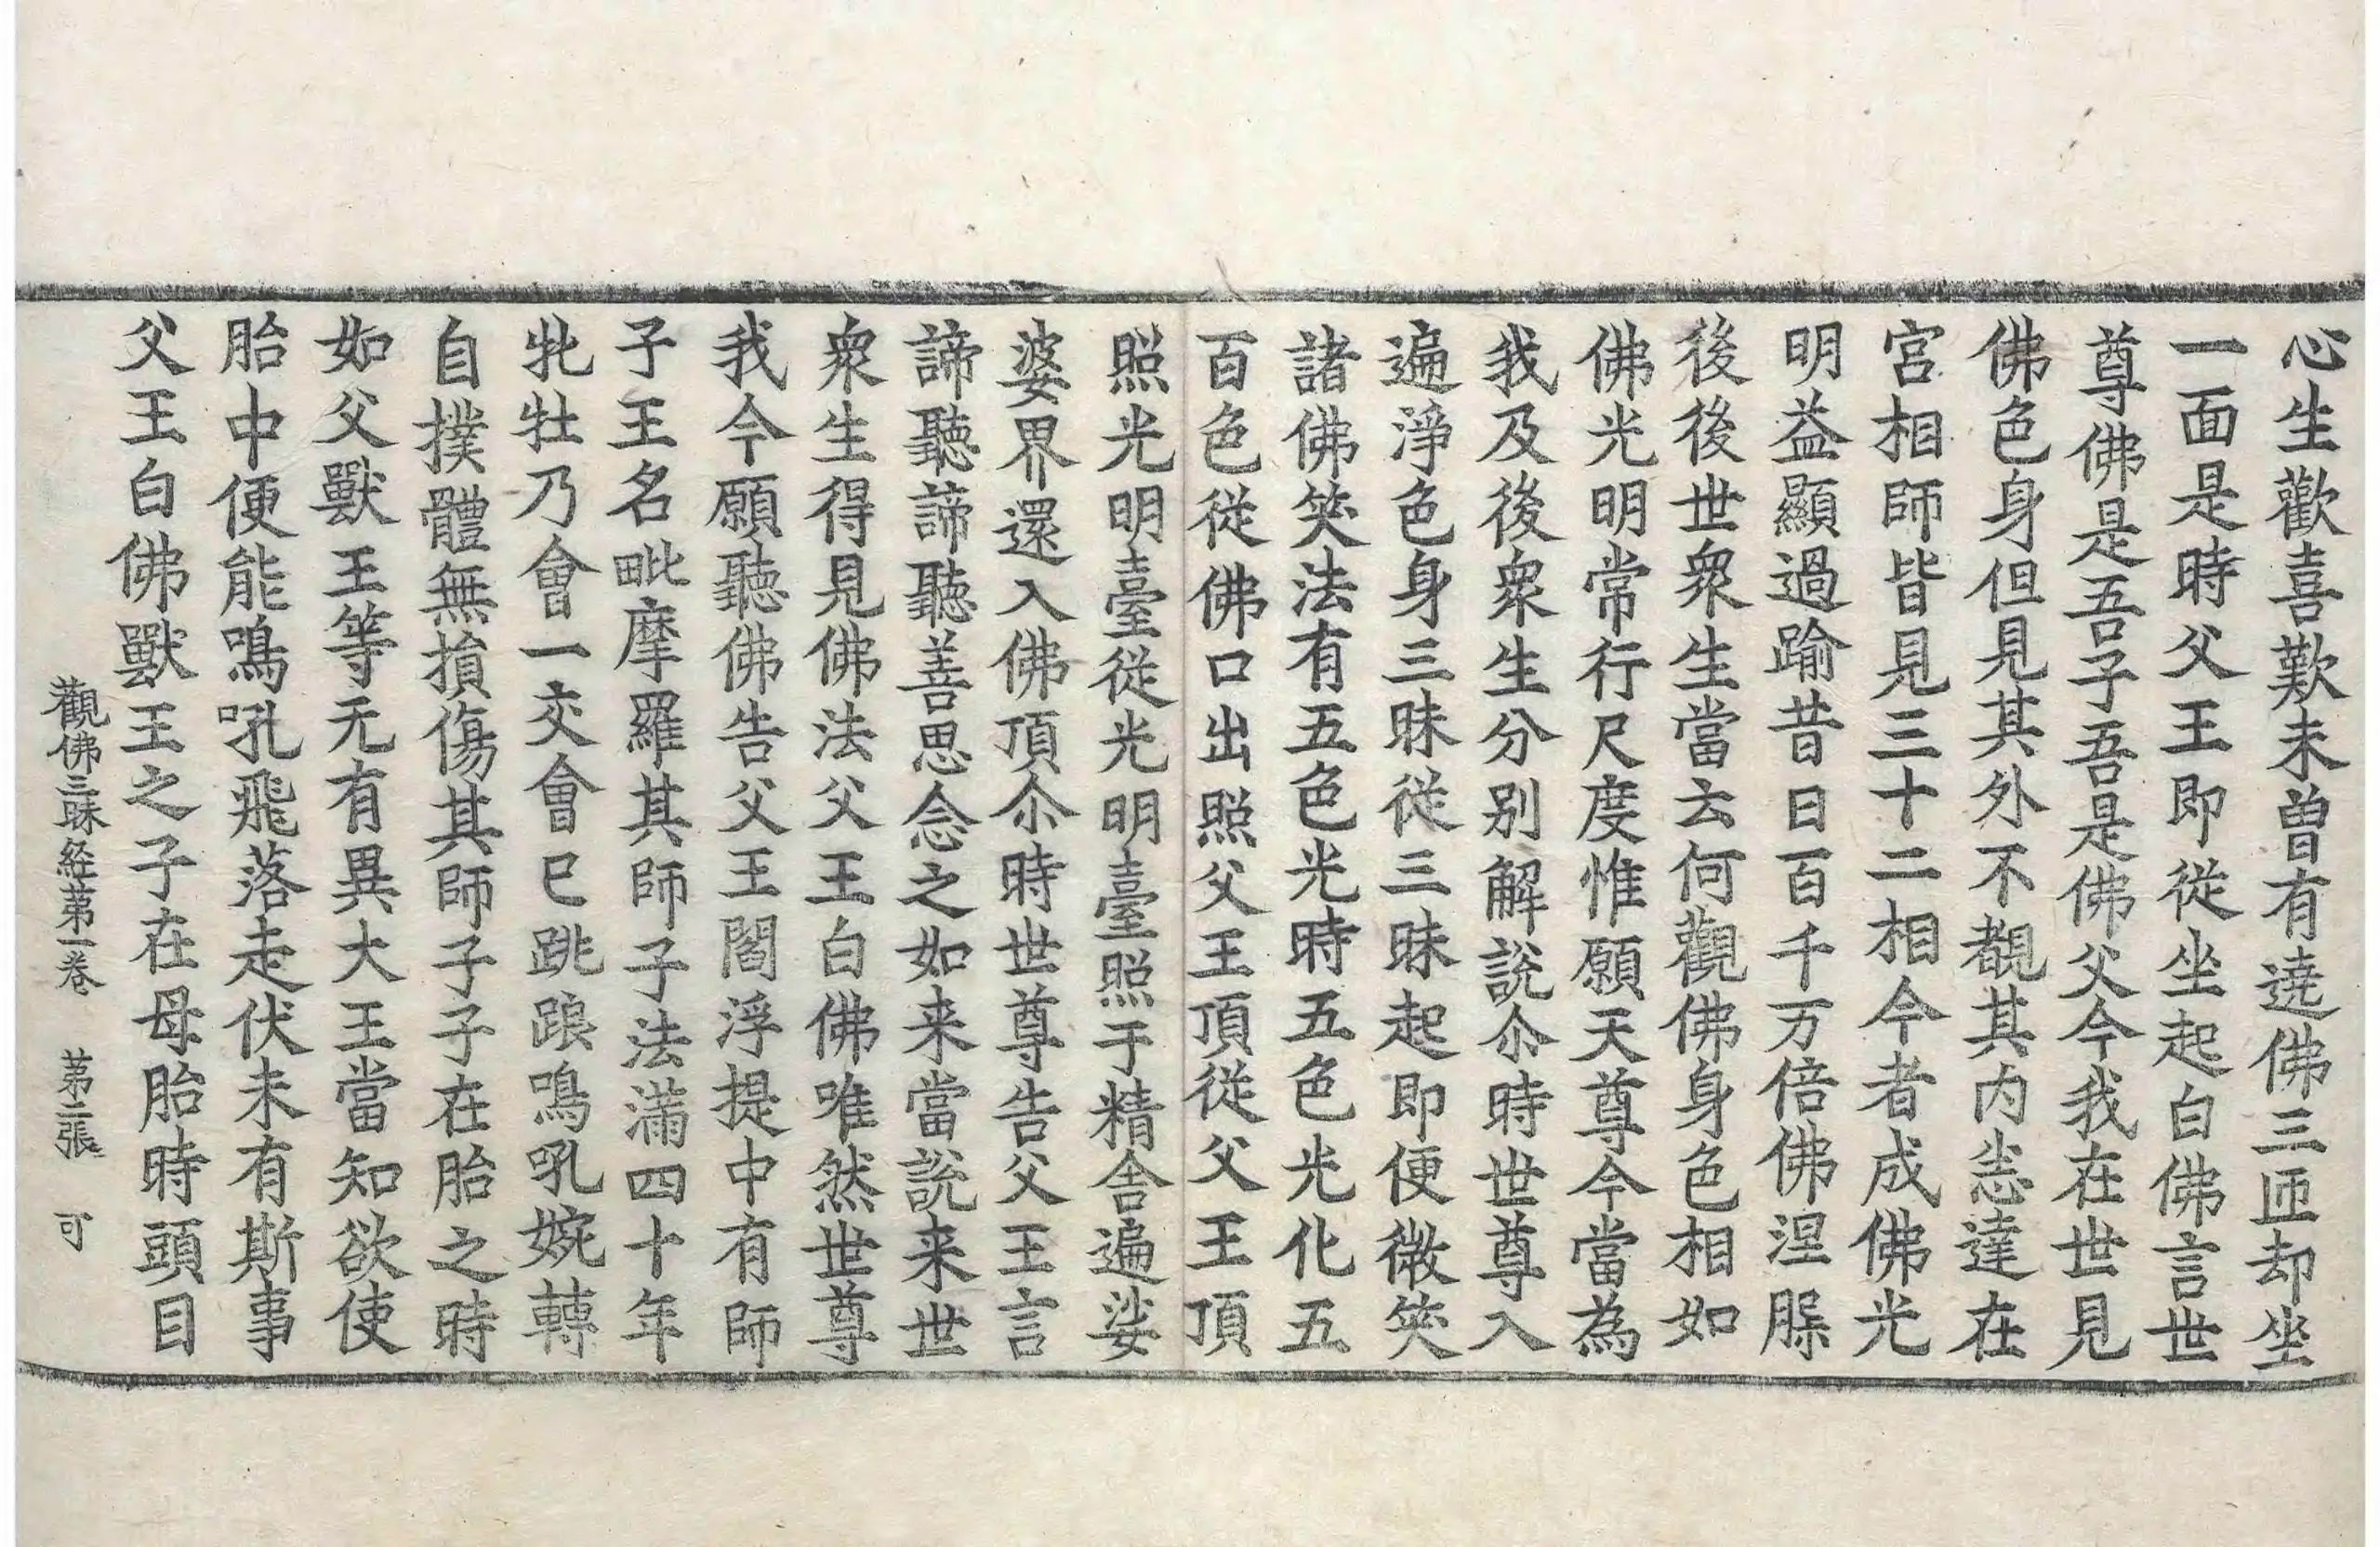 心生歡喜歎未曽有遶佛三匝却坐
一面是時父王即從坐起白佛言世
尊佛是吾子吾是佛父今我在世見
佛色身但見其外不覩其内悉達在
宮相師皆見三十二相今者成佛光
明益顯過踰昔日百千万倍佛涅槃
後後世衆生當云何觀佛身色相如
佛光明常行尺度惟願天尊今當為
我及後衆生分别解說尒時世尊入
遍淨色身三昧從三昧起即便微笑
諸佛笑法有五色光時五色光化五
百色從佛口出照父王頂從父王頂
照光明臺從光明臺照于精舍遍娑
婆界還入佛頂尒時世尊告父王言
諦聽諦聽善思念之如来當說来世
衆生得見佛法父王白佛唯然世尊
我今願聽佛告父王閻浮提中有師
子王名毗摩羅其師子法滿四十年
牝牡乃會一交會已跳踉鳴吼婉轉
自撲體無損傷其師子子在胎之時
如父獸王等无有異大王當知欲使
胎中便能鳴吼飛落走伏未有斯事
父王白佛獸王之子在母胎時頭目
觀佛三昧経苐一卷 苐二張 可